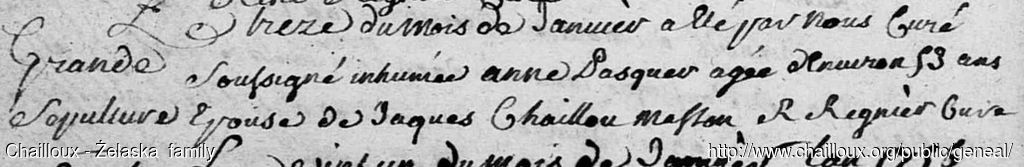 Le treze du mois de Janvier a été par nous Curé
Grande soussigné inhumée anne Pasquer agée denviron 53 ans
Sepulture Epouse de Jaques Chaillou masson R Regnier Curé
vingt un du mois de Janvier
Chailloux - Želaska family
http://www.chailloux.org/public/geneal/